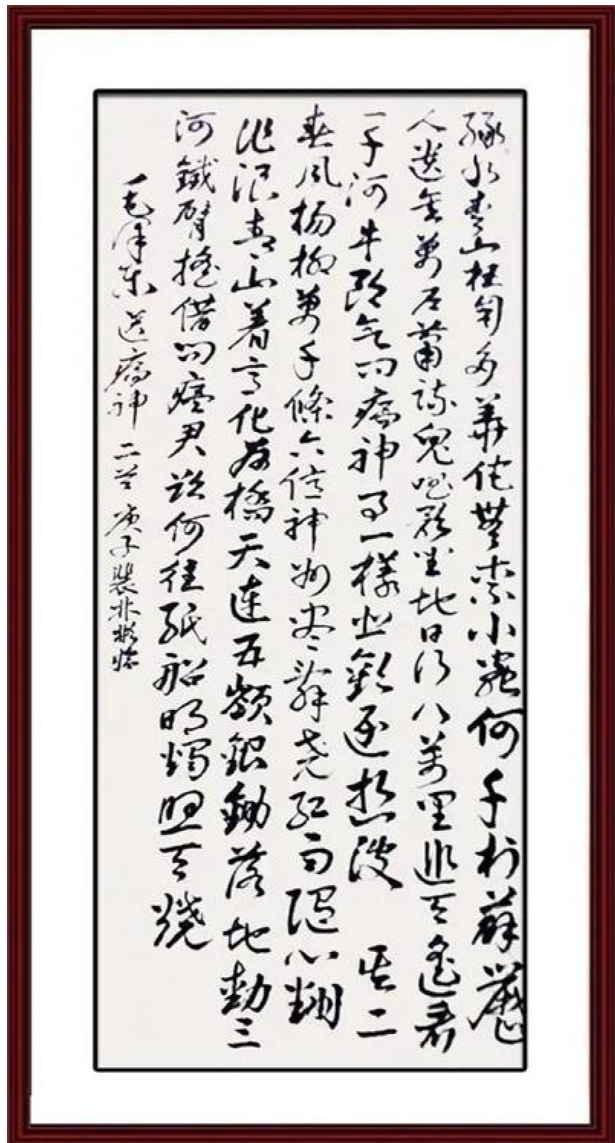 綠水青山枉自多華佗無奈小蟲何千村薜荔
人遺矢萬户蕭疏鬼唱歌坐地日行八萬里巡天遙看
一千河牛郎欲问瘟神事一樣悲歡逐逝波 其二
春風楊柳萬千條六億神州盡舜堯紅雨隨心翻
作浪青山着意化為橋天連五嶺銀鋤落地動三
河鐵臂搖借问瘟君欲何往紙船明燭照天燒
毛澤东送瘟神二首 庚子